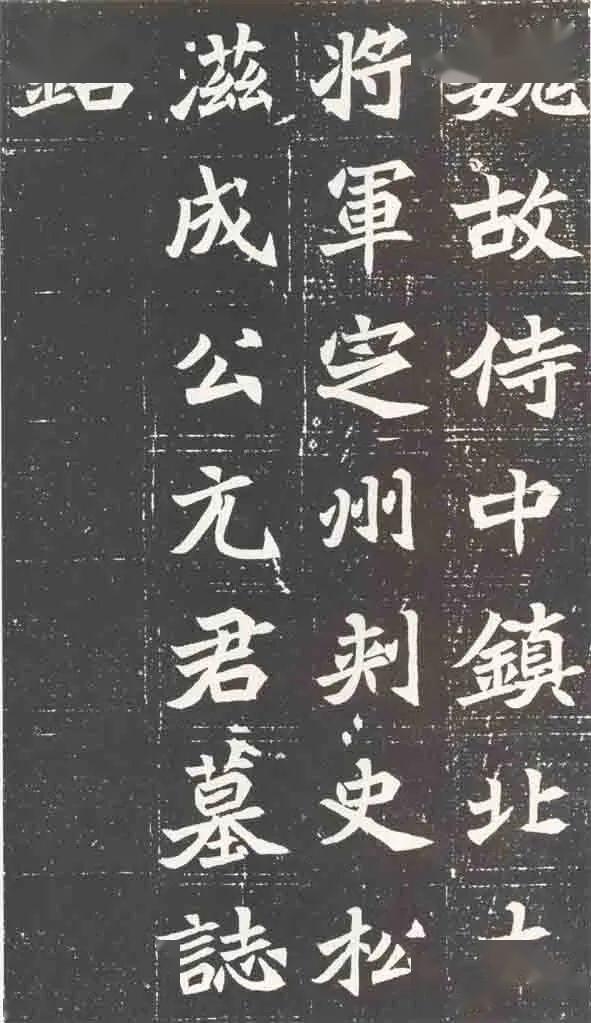 魏故侍中鎮北
將軍定州刺史松
滋成公元君墓誌
銘